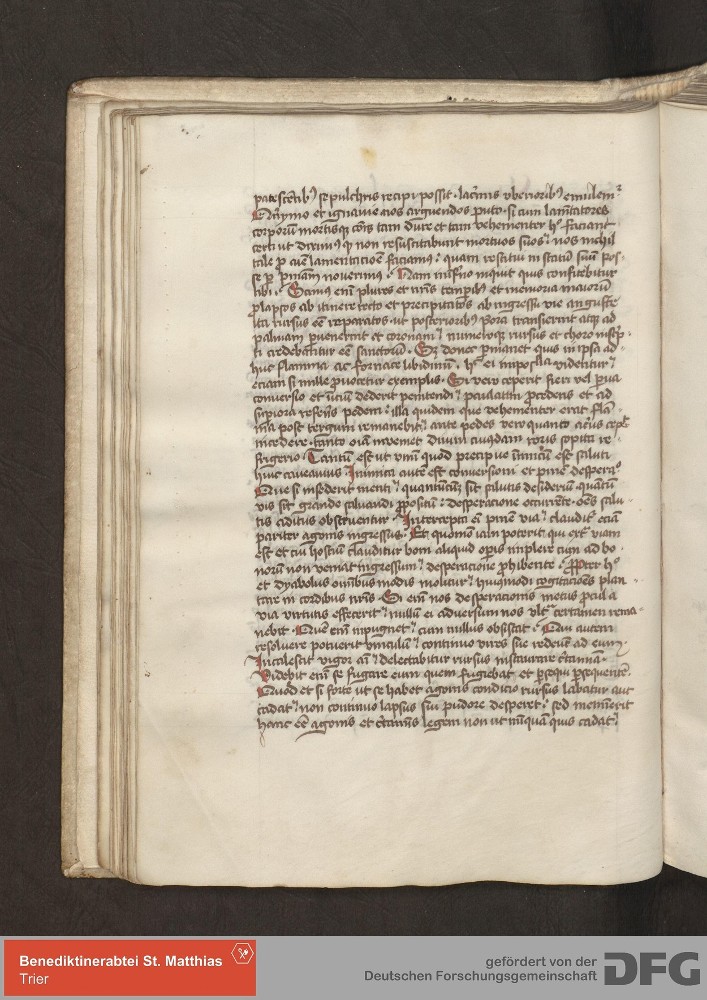 patesce̅tib⁹ sepulchris recipi possit · lac͛mis vberiorib⁹
et ignauie eos arguendos puto · si cum lame̅tatores
corporu̅ mortisq̨ tam dure et tam vehementer h͛ faciant
certi ut q non resuscitabunt mortuos suos · nos nichil
tale p lamentac̅oe̅ faciam⁹ · quam restitui in statu̅ suu̅ pos-
se p pniam nouerim⁹ · Nam inferno inquit quis confitebitur
tibi · Scim⁹ eni̅ plures et nr̅is tempib⁹ et memoria maioru̅
plapsos ab itinere recto et precipitatos ab ingressu vie anguste
ita rursus ee̅ reparatos · ut posteriorib⁹ transierint atq̨ ad
palmam puenerint et coronam · numeroq̨ rursus et choro
ti credebantur ee̅ sanctoru̅ · Sz donec p̱manet quis in ipsa ad
huc flamma ac fornace libidinu̅ · h͛ ei impossi videntur ·
eciam si mille puocetur exemplis · Si vero ceperit fieri vel p̱ua
conuersio et dederit penitendi · paulatim p̱cedens et ad
sup̱iora refere̅s pedem · illa quidem que vehementer erat fla̅
ma post tergum remanebit · ante pedes vero quanto
incedere · tanto om̅ia inueniet diuini cuiusdam roris sopita re
frigerio · Tantu̅ est ut vnu̅ quod precipue inimicu̅ est saluti
huic caueamus · Inimica aute̅ est conuersioni et pnie̅ desperac̅o
Que si insederit menti · quantumcu̅q̨ sit salutis desideriu̅ · quantu̅
vis sit grande saluandi ppositu̅ · desperacione occurre̅te · oe̅s salu-
tis aditus obstruentur · Intercepta ei̅ pnie̅ via · claudit͛ ecia̅
pariter agonis ingressus · Et quomo̅ iam poterit · qui ext͛ viam
est et cui hostiu̅ clauditur boni aliquid op̱is implere cum ad bo-
noru̅ non veniat ingressum · desperacione p̱hibente · Pp̱ter h͛
et dyabolus omnibus modis molitur · huiusmodi cogitacio̅es plan
tare in cordibus nr̅is · Si eni̅ nos desperacionis metus pcul a
via virtutis effecerit · nullu̅ ei aduersum nos vlt͛ certamen rema
nebit · Que̅ eni̅ inpugnet · cum nullus obsistat · Qui autem
resoluere potuerit vinculu̅ · continuo vires sue redeu̅t ad eum ·
Incalescit vigor ai̅ · delectabitur rursus instaurare c͛tamina ·
Videbit eni̅ se fugare eum quem fugiebat · et p̱sequi p̱sequente̅ ·
Quod et si forte ut se habet agonis condicio rursus labatur aut
cadat · non continuo lapsus sui pudore desperet · sed meminerit
hanc ee̅ agonis et c͛taminis legem non ut nu̅qua̅ quis cadat ·
Benediktinerabtei St. Matthias
Trier
gefördert von der
Deutschen Forschungsgemeinschaft
DFG